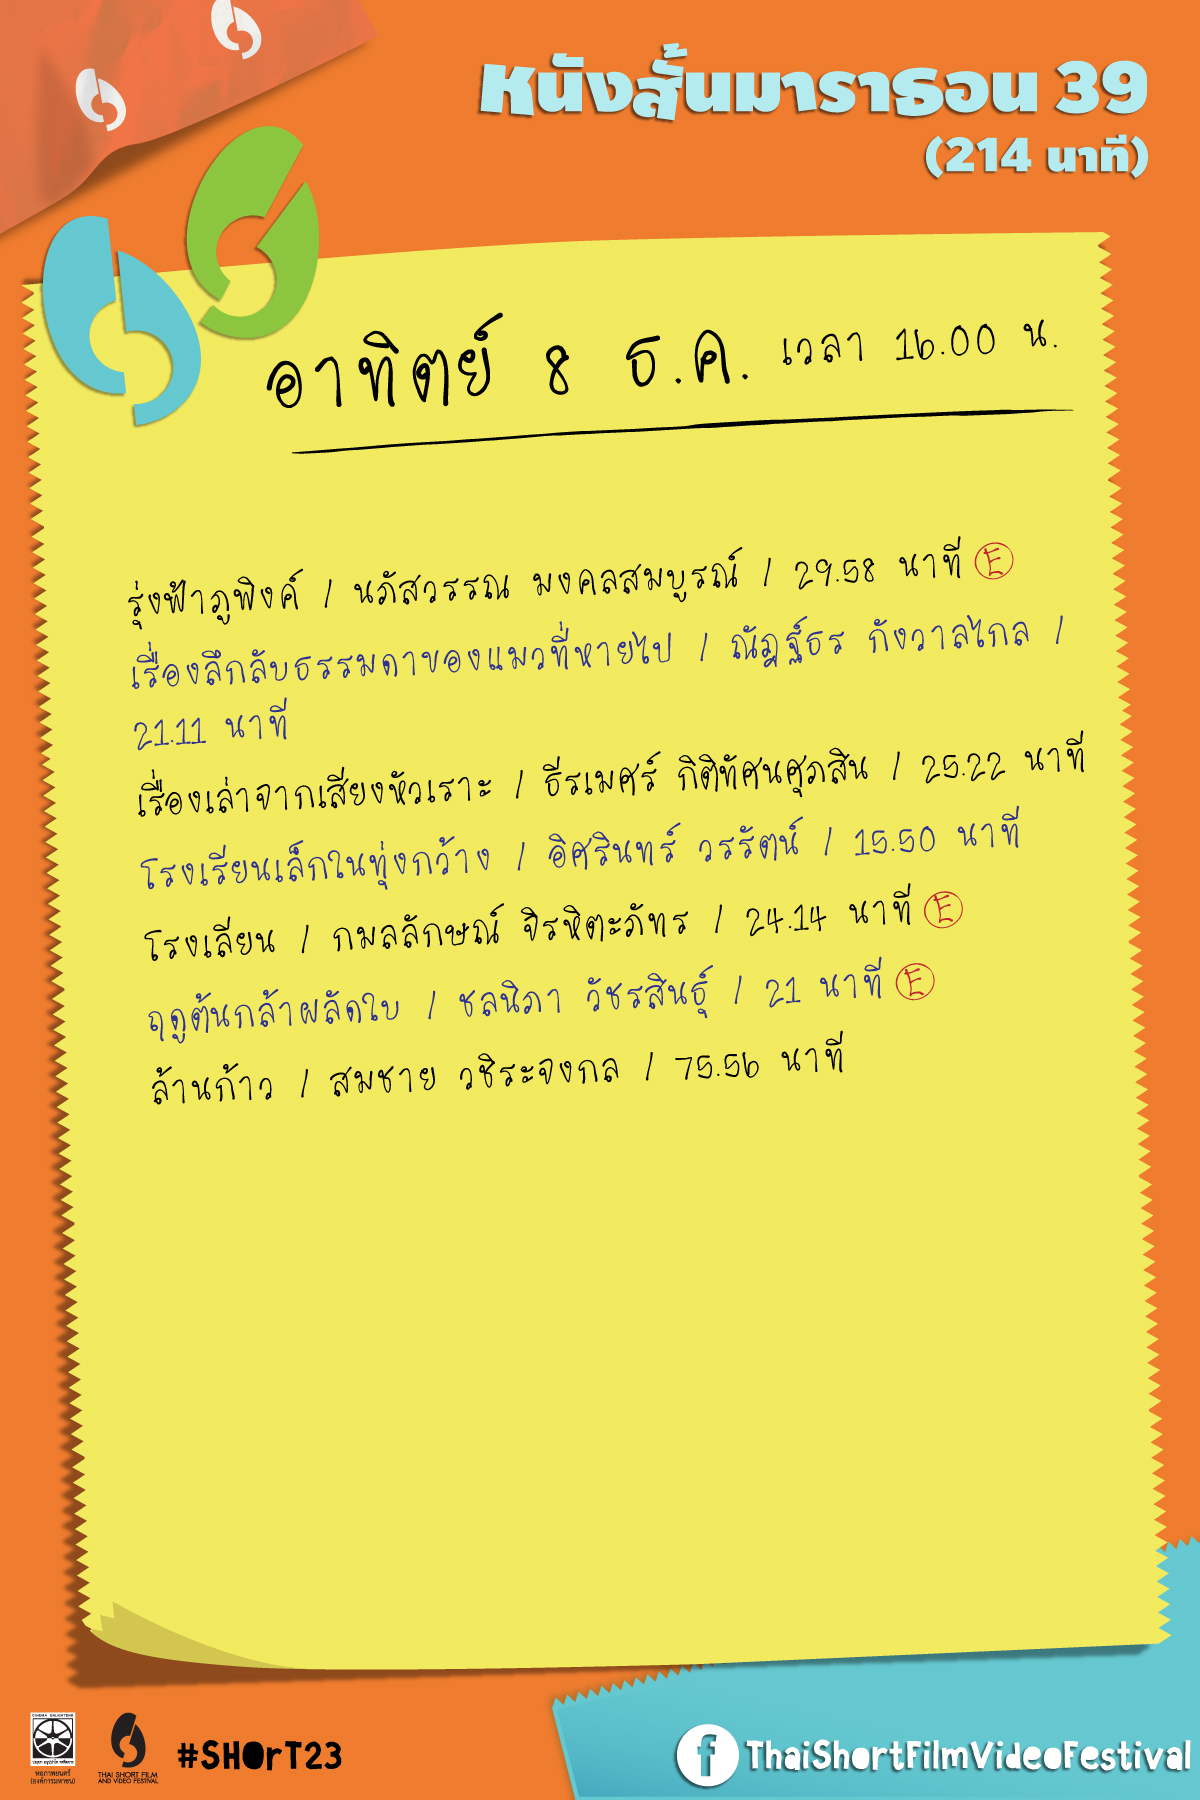 หนังสั้นมาราธอน 39
(214 นาที)
อาทิตย์ 8 ธ.ค. เวลา 16.00 น.
รุ่งฟ้าภูพิงค์ / นภัสวรรณ มงคลสมบูรณ์ / 29.58 นาที E
เรื่องลึกลับธรรมดาของแมวที่หายไป / ณัฏฐ์ธร กังวาลไกล /
21.11 นาที
เรื่องเล่าจากเสียงหัวเราะ / ธีรเมศร์ กิติทัศนศุภสิน / 25.22 นาที
โรงเรียนเล็กในทุ่งกว้าง / อิศรินทร์ วรรัตน์ / 15.50 นาที
โรงเลียน / กมลลักษณ์ จิรหิตะภัทร / 24.14 นาที E
ฤดูต้นกล้าผลัดใบ / ชลนิภา วัชรสินธุ์ / 21 นาที E
ล้านก้าว / สมชาย วชิระจงกล / 75.56 นาที
CINEMA ENLIGHTENS
หอภาพยนตร์
(องค์การมหาชน)
THAI SHORT FILM
AND VIDEO FESTIVAL
#SHOrT23
f ThaiShortFilmVideoFestival